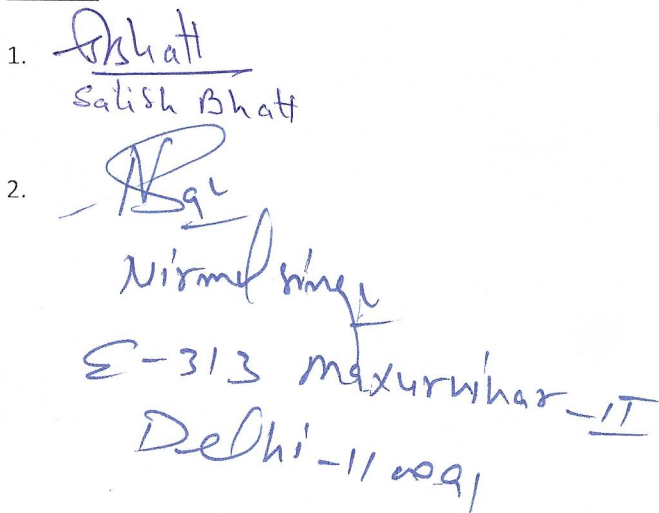 1. SBhatt
Satish Bhatt
2.
Nirmal Singh
E-313 Mayurvihar-II
Delhi-110091